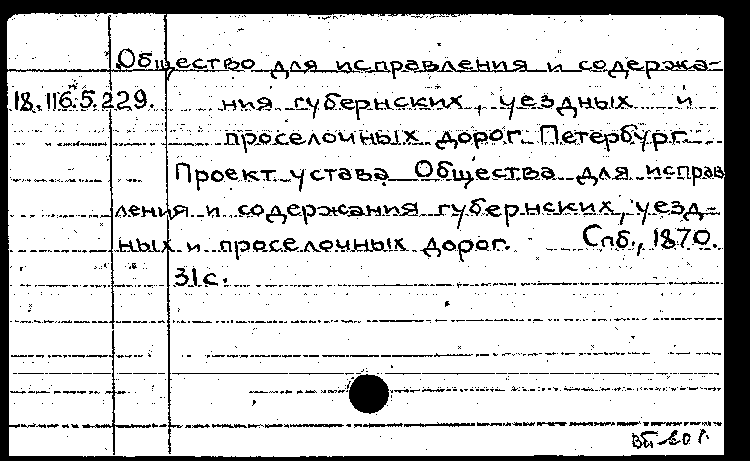 Общество для исправления и содержа-
18.116.5.229. ния губернских, уездных и
проселочных дорог. Петербург.
Проект устава Общества для исправ
ления и содержания губернских, уезд-
ных и проселочных дорог. Спб., 1870.
31с.